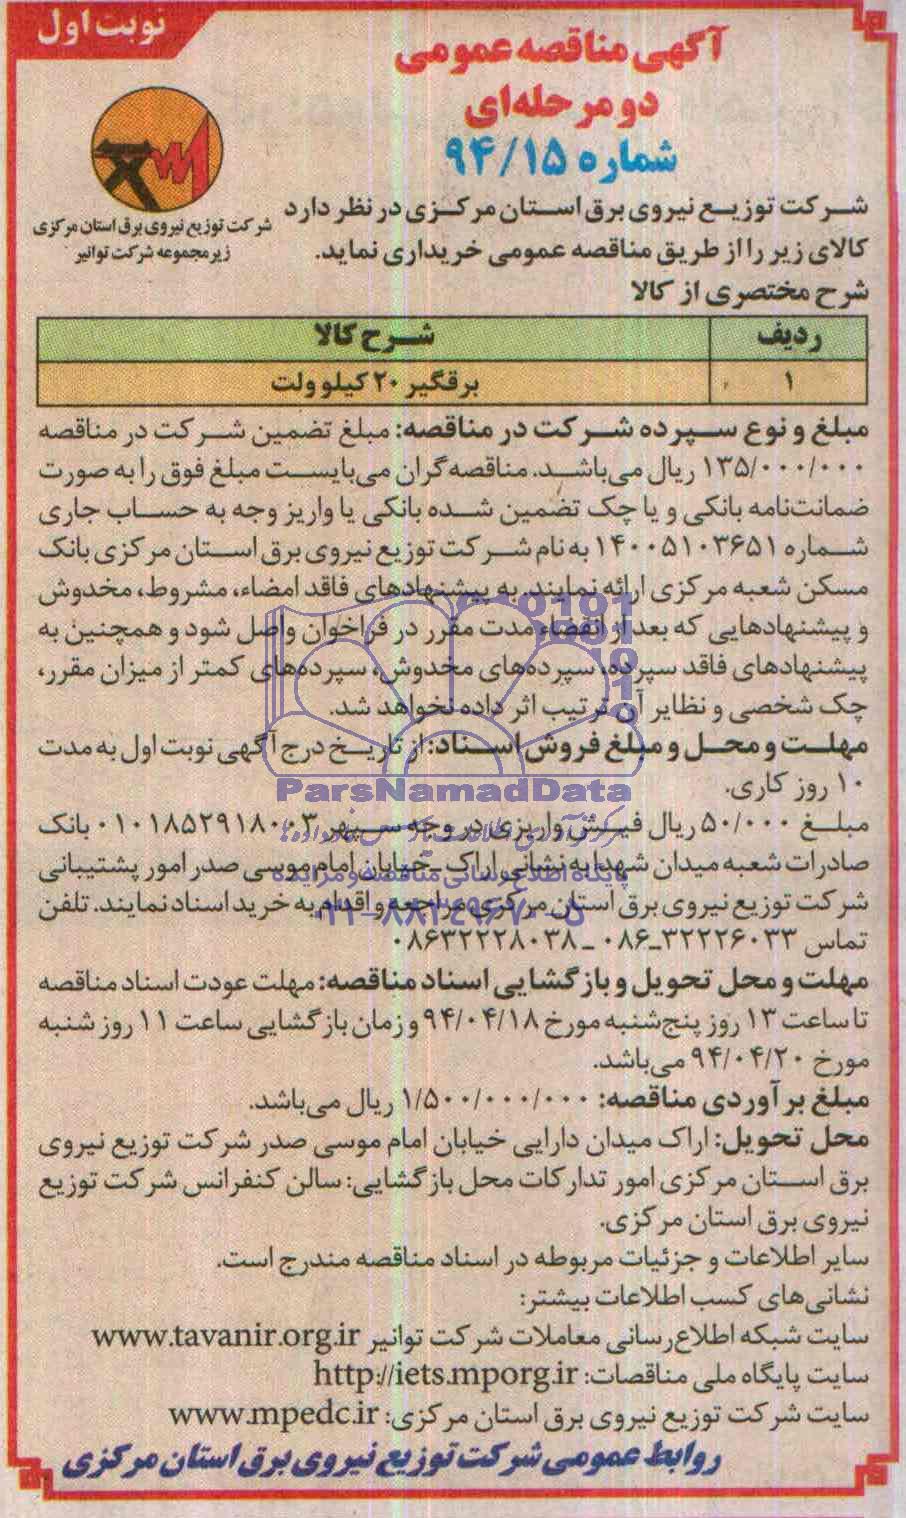 نوبت اول
آگهی مناقصه عمومی
دو مرحله‌ای
شماره ۹۴/۱۵
شرکت توزیع نیروی برق استان مرکزی
زیرمجموعه شرکت توانیر
شرکت توزیع نیروی برق استان مرکزی در نظر دارد
کالای زیر را از طریق مناقصه عمومی خریداری نماید.
شرح مختصری از کالا
ردیف شرح کالا
۱ برقگیر ۲۰ کیلو ولت
مبلغ و نوع سپرده شرکت در مناقصه: مبلغ تضمین شرکت در مناقصه
۱۳۵/۰۰۰/۰۰۰ ریال می‌باشد. مناقصه‌گران می‌بایست مبلغ فوق را به صورت
ضمانت‌نامه بانکی و یا چک تضمین شده بانکی یا واریز وجه به حساب جاری
شماره ۱۴۰۰۵۱۰۳۶۵۱ به نام شرکت توزیع نیروی برق استان مرکزی بانک
مسکن شعبه مرکزی ارائه نمایند. به پیشنهادهای فاقد امضاء، مشروط، مخدوش
و پیشنهادهایی که بعد از انقضاء مدت مقرر در فراخوان واصل شود و همچنین به
پیشنهادهای فاقد سپرده، سپرده‌های مخدوش، سپرده‌های کمتر از میزان مقرر،
چک شخصی و نظایر آن ترتیب اثر داده نخواهد شد.
مهلت و محل و مبلغ فروش اسناد: از تاریخ درج آگهی نوبت اول به مدت
۱۰ روز کاری.
ParsNamadData
مبلغ ۵۰/۰۰۰ ریال فیش واریزی در وجه سپهر ۰۱۰۱۸۵۲۹۱۸۰۰۳ بانک
صادرات شعبه میدان شهدا به نشانی اراک - خیابان امام موسی صدر امور پشتیبانی
پایگاه اطلاع رسانی مناقصه و مزایده
شرکت توزیع نیروی برق استان مرکزی مراجعه و اقدام به خرید اسناد نمایند. تلفن
۰۲۱-۸۸۳۴۹۶۷۰-۵
تماس ۳۲۲۲۶۰۳۳-۰۸۶ - ۰۸۶۳۲۲۲۸۰۳۸
مهلت و محل تحویل و بازگشایی اسناد مناقصه: مهلت عودت اسناد مناقصه
تا ساعت ۱۳ روز پنج‌شنبه مورخ ۹۴/۰۴/۱۸ و زمان بازگشایی ساعت ۱۱ روز شنبه
مورخ ۹۴/۰۴/۲۰ می‌باشد.
مبلغ برآوردی مناقصه: ۱/۵۰۰/۰۰۰/۰۰۰ ریال می‌باشد.
محل تحویل: اراک میدان دارایی خیابان امام موسی صدر شرکت توزیع نیروی
برق استان مرکزی امور تدارکات محل بازگشایی: سالن کنفرانس شرکت توزیع
نیروی برق استان مرکزی.
سایر اطلاعات و جزئیات مربوطه در اسناد مناقصه مندرج است.
نشانی‌های کسب اطلاعات بیشتر:
سایت شبکه اطلاع‌رسانی معاملات شرکت توانیر www.tavanir.org.ir
سایت پایگاه ملی مناقصات: http://iets.mporg.ir
سایت شرکت توزیع نیروی برق استان مرکزی: www.mpedc.ir
روابط عمومی شرکت توزیع نیروی برق استان مرکزی